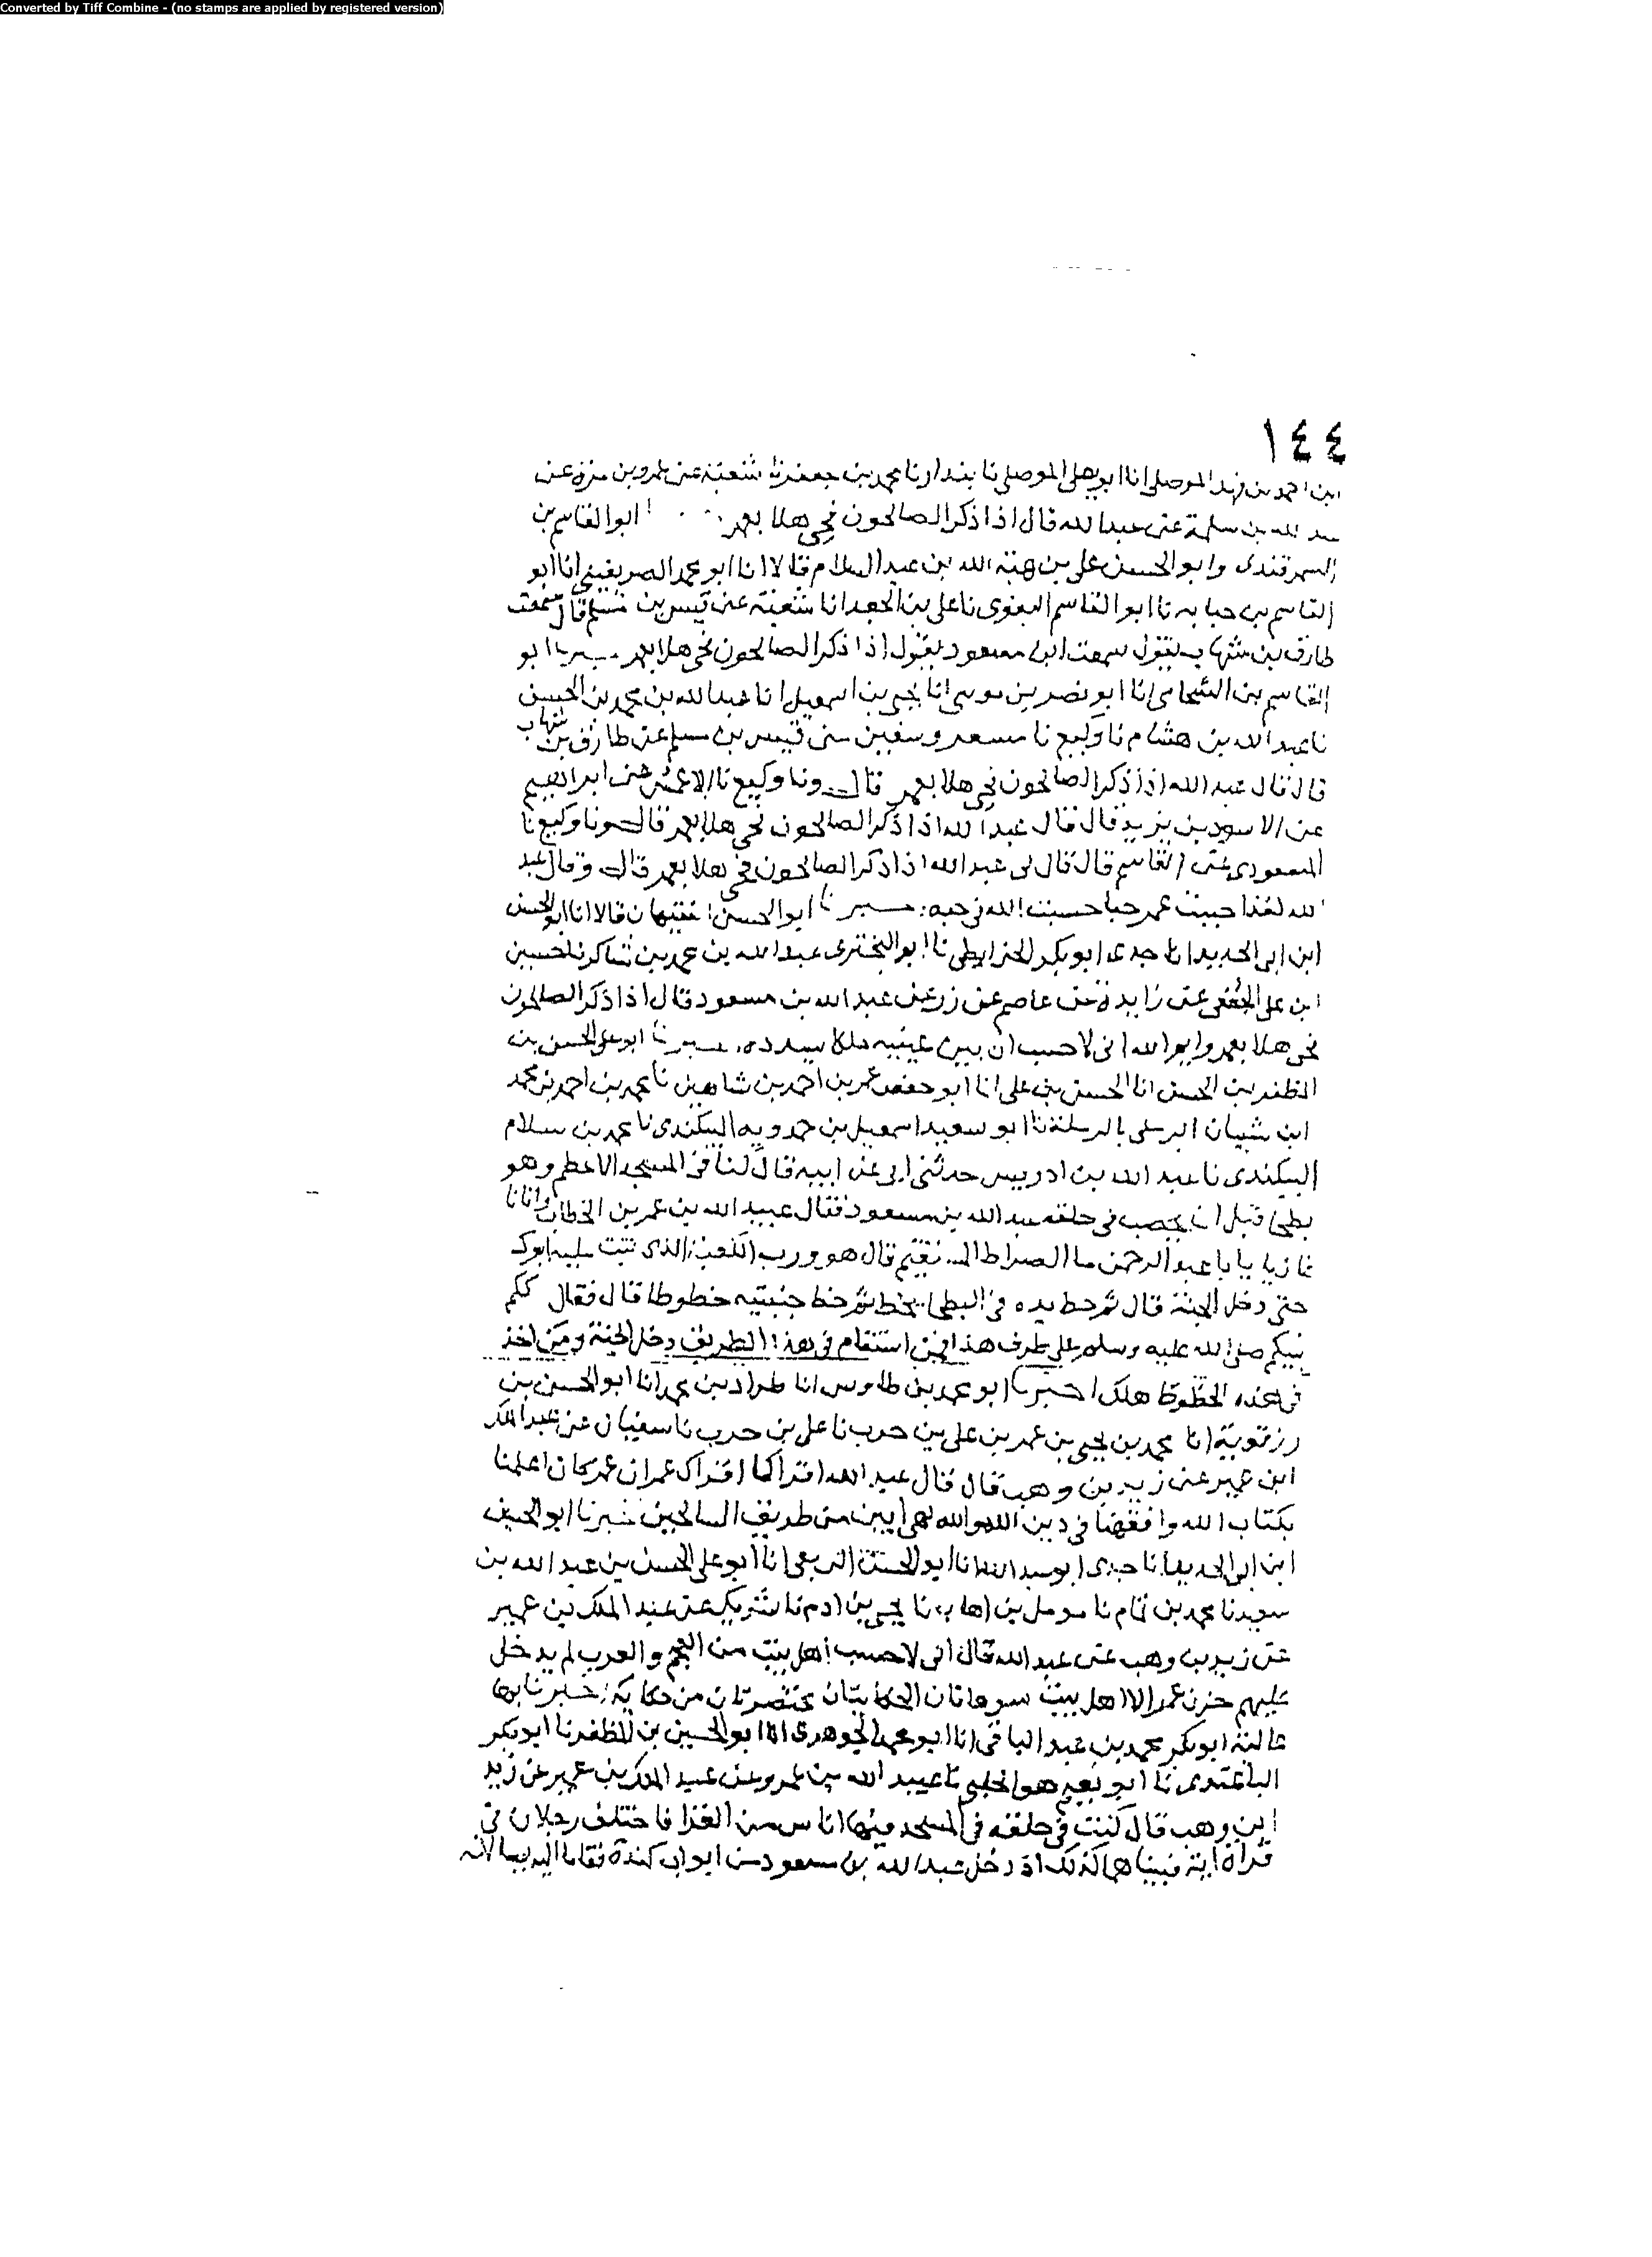 Converted by Tiff Combine - (no stamps are applied by registered version)
١٤٤
ابن احمد بن فهد الموصلي انا ابو يعلى الموصلي نا بندار نا محمد بن جعفر نا شعبة عن عمرو بن مرة عن
عبد الله بن سلمة عن عبد الله قال اذا ذكر الصالحون فحي هلا بعمر ابو القاسم بن
السمرقندى وابو الحسن علي بن هبة الله بن عبد السلام قالا انا ابو محمد الصريفيني انا ابو
القاسم بن حبابه نا ابو القاسم البغوى نا علي بن الجعد انا شعبة عن قيس بن مسلم قال سمعت
طارق بن شهاب يقول سمعت ابن مسعود يقول اذا ذكر الصالحون فحي هلا بعمر ابو
القاسم بن الشحامي انا ابو نصر بن موسى انا يحيى بن اسمعيل انا عبد الله بن محمد بن الحسن
نا عبد الله بن هشام نا وكيع نا مسعر وسفين عن قيس بن مسلم عن طارق بن شهاب
قال قال عبد الله اذا ذكر الصالحون فحي هلا بعمر قال ونا وكيع نا الاعمش عن ابراهيم
عن الاسود بن يزيد قال قال عبد الله اذا ذكر الصالحون فحي هلا بعمر قال ونا وكيع نا
المسعودى عن القاسم قال قال لى عبد الله اذا ذكر الصالحون فحي هلا بعمر قال وقال عبد
الله لقد احببت عمر حبا حسبت الله فى حبه ابو الحسن قالا انا ابو الحسن
ابن ابي الحديد انا جدى ابو بكر الخرايطي نا ابو البخترى عبد الله بن محمد بن شاكر نا حسين
ابن علي الجعفي عن زايدة عن عاصم عن زر عن عبد الله بن مسعود قال اذا ذكر الصالحون
فحي هلا بعمر وايم الله انى لاحسب ان بين عينيه ملكا يسدده ابو علي الحسن بن
المظفر بن الحسن انا الحسن بن علي انا ابو حفص عمر بن احمد بن شاهين نا محمد بن احمد بن محمد
ابن شيبان الرملى بالرملة نا ابو سعيد اسمعيل بن حمدويه البيكندى نا محمد بن سلام
البيكندى نا عبد الله بن ادريس حدثنى ابى عن ابيه قال لنا فى المسجد الاعظم وهو
بطحا قبل ان يحصب فى حلقه عبد الله بن مسعود فقال عبيد الله بن عمر بن الخطاب وانانا
غازيا يا با عبد الرحمن ما الصراط المستقيم قال هو ورب الكعبة الذى ثبت عليه ابوك
حتى دخل الجنة قال ثم خط بيده فى البطحا بخط ثم خط جنبتيه خطوطا قال فقال ككم
نبيكم صلى الله عليه وسلم على طرف هذا فمن استقام فى هذا الطريق دخل الجنة ومن اخذ
فى هذه الخطوط هلك اخبرنا ابو محمد بن طاوس انا طراد بن محمد انا ابو الحسن بن
رزقويه انا محمد بن يحيى بن عمر بن علي بن حرب نا علي بن حرب نا سفيان عن عبد الملك
ابن عمير عن زيد بن وهب قال قال عبد الله اقرا كما اقراك عمر ان عمر كان اعلمنا
بكتاب الله وافقهنا فى دين الله والله لهى ابين من طريق السالحين خبرنا ابو الحسن
ابن ابى الحديد انا جدى ابو عبد الله انا ابو الحسن الربعى انا ابو علي الحسن بن عبد الله بن
سعيد نا محمد بن تمام نا مومل بن اهاب نا يحيى بن ادم نا شريك عن عبد الملك بن عمير
عن زيد بن وهب عن عبد الله قال انى لاحسب اهل بيت من العجم والعرب لم يدخل
عليهم حزن عمر الا اهل بيت سو هاتان الحكايتان مختصرتان من حكاية خبرنا بها
عالية ابو بكر محمد بن عبد الباقى انا ابو محمد الجوهرى انا ابو الحسين بن المظفر نا ابو بكر
الباغندى نا ابو نعيم هو الحلبى نا عبيد الله بن عمرو عن عبد الملك بن عمير عن زيد
ابن وهب قال كنت فى حلقه فى المسجد فيها اناس من القرا فاختلف رجلان فى
قراة اية فبينا هما كذلك اذ دخل عبد الله بن مسعود من ابواب كندة فقاما اليه يسالانه